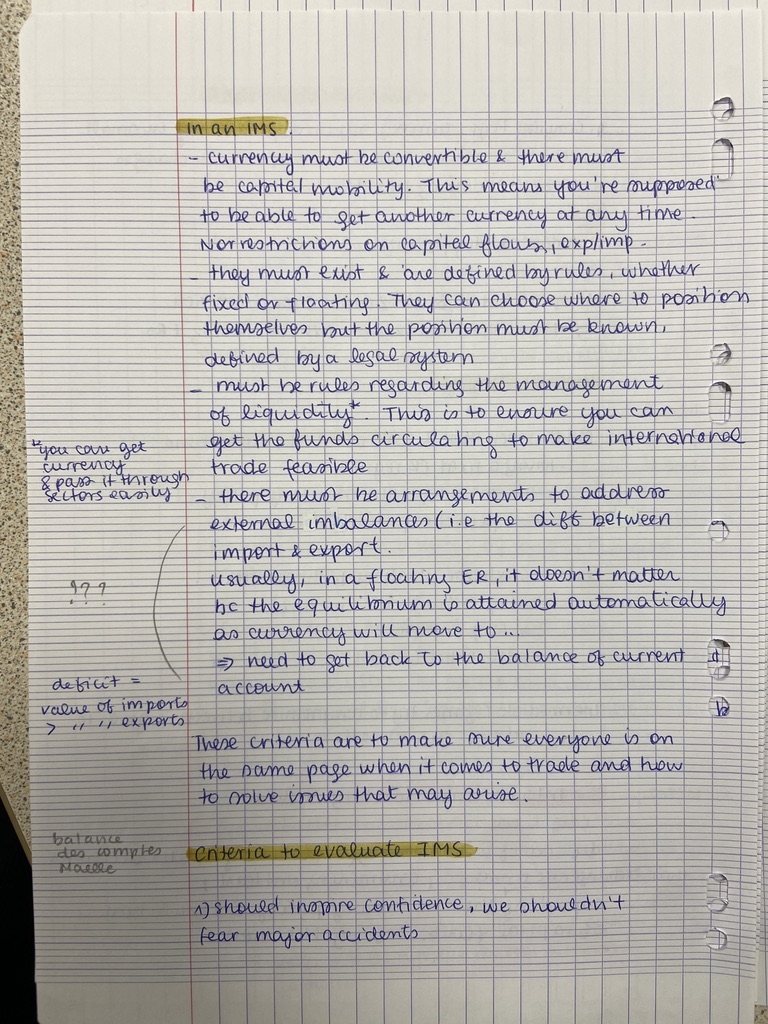 in an IMS.
- currency must be convertible & there must
be capital mobility. This means you're supposed
to be able to get another currency at any time.
Nor restrictions on capital flows, exp/imp.
- they must exist & are defined by rules, whether
fixed or floating. They can choose where to position
themselves but the position must be known,
defined by a legal system
- must be rules regarding the management
of liquidity*. This is to ensure you can
get the funds circulating to make international
trade feasible
*you can get
currency
& pass it through
sectors easily
- there must be arrangements to address
external imbalances (i.e the diff between
import & export.
usually, in a floating ER, it doesn't matter
bc the equilibrium is attained automatically
as currency will move to...
⇒ need to get back to the balance of current
account
???
deficit =
value of imports
> " " exports
These criteria are to make sure everyone is on
the same page when it comes to trade and how
to solve issues that may arise.
balance
des comptes
Maelle
criteria to evaluate IMS
1) should inspire confidence, we shouldn't
fear major accidents